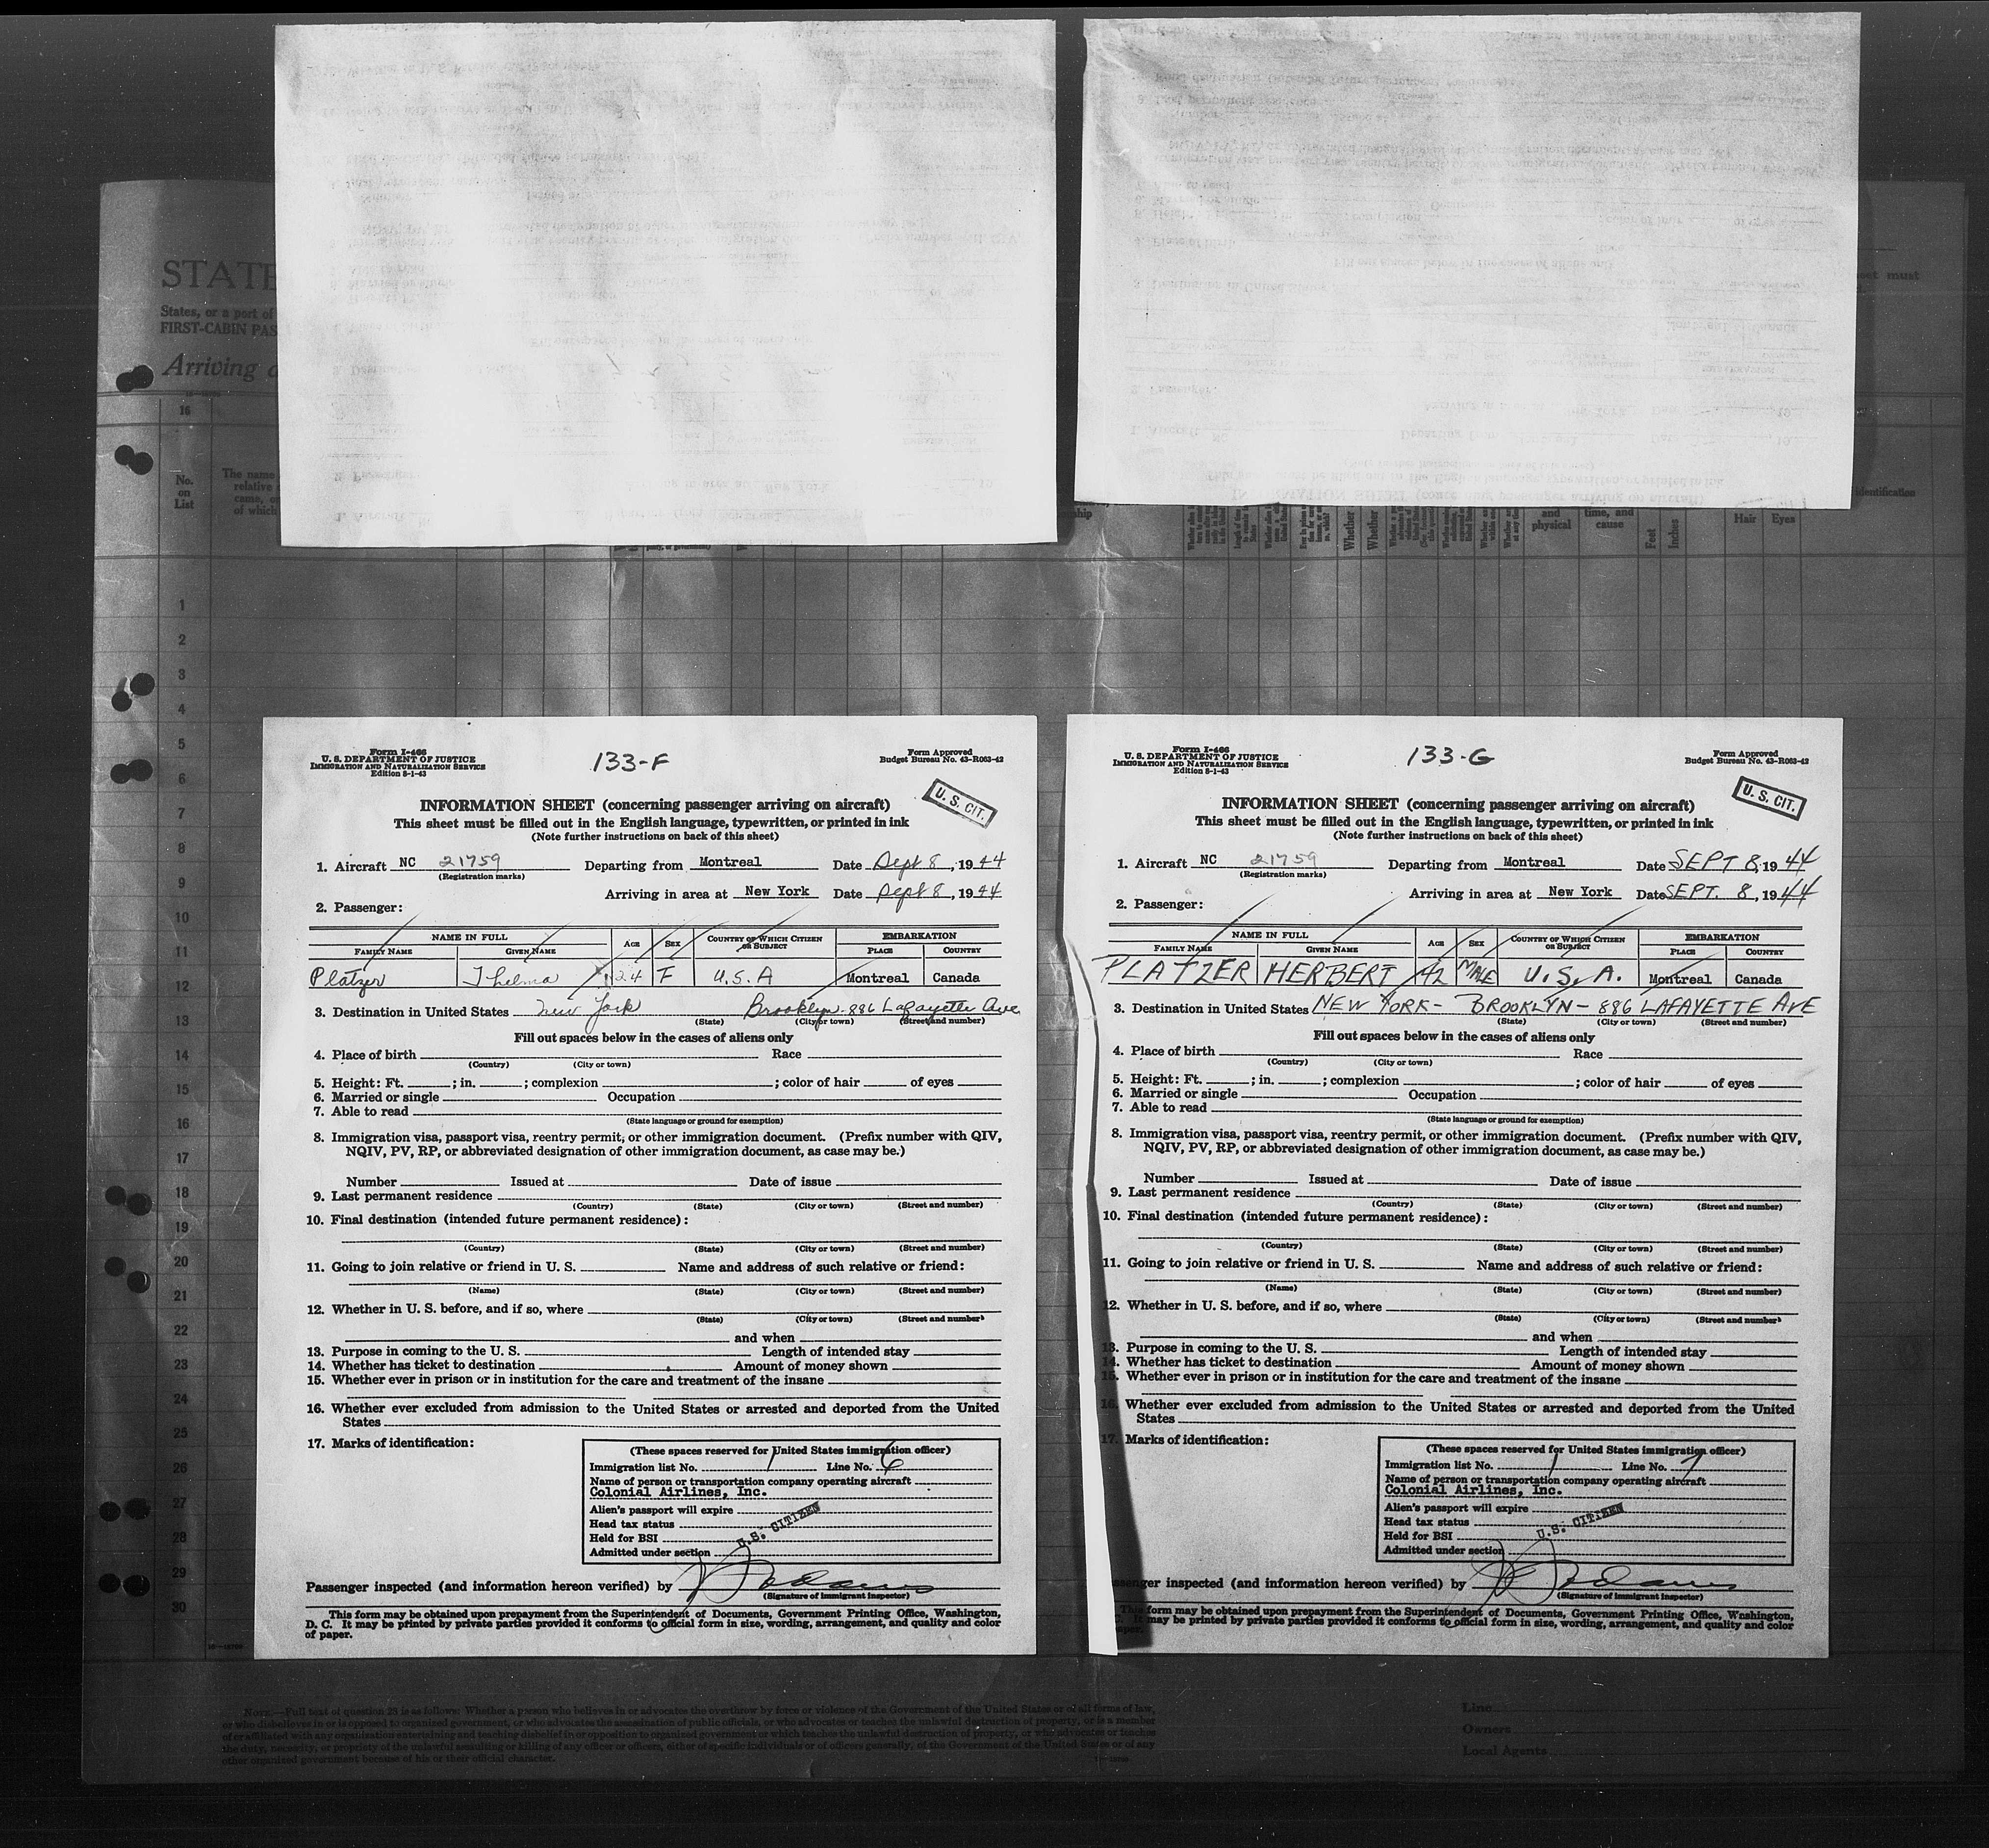 STATE
States, or a part of
FIRST-CABIN PAS
Arriving
16
No.
on
List
The name
relative
came, o
of which
and
physical
time, and
cause
Feet
Inches
Hair Eyes
Identification
must
1
2
3
4
5
6
7
8
9
10
11
12
13
14
15
16
17
18
19
20
21
22
23
24
25
26
27
28
29
30
Form I-466
U. S. DEPARTMENT OF JUSTICE
IMMIGRATION AND NATURALIZATION SERVICE
Edition 8-1-43
133-F
Form Approved
Budget Bureau No. 43-R063-42
U. S. CIT.
INFORMATION SHEET (concerning passenger arriving on aircraft)
This sheet must be filled out in the English language, typewritten, or printed in ink
(Note further instructions on back of this sheet)
1. Aircraft NC 21759 Departing from Montreal Date Sept 8, 1944
(Registration marks)
Arriving in area at New York Date Sept 8, 1944
2. Passenger:
NAME IN FULL AGE SEX COUNTRY OF WHICH CITIZEN OR SUBJECT EMBARKATION
FAMILY NAME GIVEN NAME PLACE COUNTRY
Platzer Thelma 24 F U.S.A Montreal Canada
3. Destination in United States New York Brooklyn 886 Lafayette Ave
(State) (City or town) (Street and number)
Fill out spaces below in the cases of aliens only
4. Place of birth Race
(Country) (City or town)
5. Height: Ft. ; in. ; complexion ; color of hair of eyes
6. Married or single Occupation
7. Able to read
(State language or ground for exemption)
8. Immigration visa, passport visa, reentry permit, or other immigration document. (Prefix number with QIV,
NQIV, PV, RP, or abbreviated designation of other immigration document, as case may be.)
Number Issued at Date of issue
9. Last permanent residence
(Country) (State) (City or town) (Street and number)
10. Final destination (intended future permanent residence):
(Country) (State) (City or town) (Street and number)
11. Going to join relative or friend in U. S. Name and address of such relative or friend:
(Name) (State) (City or town) (Street and number)
12. Whether in U. S. before, and if so, where
(State) (City or town) (Street and number)
and when
13. Purpose in coming to the U. S. Length of intended stay
14. Whether has ticket to destination Amount of money shown
15. Whether ever in prison or in institution for the care and treatment of the insane
16. Whether ever excluded from admission to the United States or arrested and deported from the United
States
17. Marks of identification:
(These spaces reserved for United States immigration officer)
Immigration list No. 1 Line No. 6
Name of person or transportation company operating aircraft
Colonial Airlines, Inc.
Alien's passport will expire
Head tax status
Held for BSI
U.S. CITIZEN
Admitted under section
Passenger inspected (and information hereon verified) by
(Signature of immigrant inspector)
This form may be obtained upon prepayment from the Superintendent of Documents, Government Printing Office, Washington,
D. C. It may be printed by private parties provided it conforms to official form in size, wording, arrangement, and quality and color
of paper.
Form I-466
U. S. DEPARTMENT OF JUSTICE
IMMIGRATION AND NATURALIZATION SERVICE
Edition 8-1-43
133-G
Form Approved
Budget Bureau No. 43-R063-42
U. S. CIT.
INFORMATION SHEET (concerning passenger arriving on aircraft)
This sheet must be filled out in the English language, typewritten, or printed in ink
(Note further instructions on back of this sheet)
1. Aircraft NC 21759 Departing from Montreal Date SEPT 8, 1944
(Registration marks)
Arriving in area at New York Date SEPT. 8, 1944
2. Passenger:
NAME IN FULL AGE SEX COUNTRY OF WHICH CITIZEN OR SUBJECT EMBARKATION
FAMILY NAME GIVEN NAME PLACE COUNTRY
PLATZER HERBERT 42 MALE U.S.A. Montreal Canada
3. Destination in United States NEW YORK - BROOKLYN - 886 LAFAYETTE AVE
(State) (City or town) (Street and number)
Fill out spaces below in the cases of aliens only
4. Place of birth Race
(Country) (City or town)
5. Height: Ft. ; in. ; complexion ; color of hair of eyes
6. Married or single Occupation
7. Able to read
(State language or ground for exemption)
8. Immigration visa, passport visa, reentry permit, or other immigration document. (Prefix number with QIV,
NQIV, PV, RP, or abbreviated designation of other immigration document, as case may be.)
Number Issued at Date of issue
9. Last permanent residence
(Country) (State) (City or town) (Street and number)
10. Final destination (intended future permanent residence):
(Country) (State) (City or town) (Street and number)
11. Going to join relative or friend in U. S. Name and address of such relative or friend:
(Name) (State) (City or town) (Street and number)
12. Whether in U. S. before, and if so, where
(State) (City or town) (Street and number)
and when
13. Purpose in coming to the U. S. Length of intended stay
14. Whether has ticket to destination Amount of money shown
15. Whether ever in prison or in institution for the care and treatment of the insane
16. Whether ever excluded from admission to the United States or arrested and deported from the United
States
17. Marks of identification:
(These spaces reserved for United States immigration officer)
Immigration list No. 1 Line No. 7
Name of person or transportation company operating aircraft
Colonial Airlines, Inc.
Alien's passport will expire
Head tax status
Held for BSI
U.S. CITIZEN
Admitted under section
Passenger inspected (and information hereon verified) by
(Signature of immigrant inspector)
This form may be obtained upon prepayment from the Superintendent of Documents, Government Printing Office, Washington,
may be printed by private parties provided it conforms to official form in size, wording, arrangement, and quality and color
paper.
NOTE.—Full text of question 23 is as follows: Whether a person who believes in or advocates the overthrow by force or violence of the Government of the United States or of all forms of law,
or who disbelieves in or is opposed to organized government, or who advocates the assassination of public officials, or who advocates or teaches the unlawful destruction of property, or is a member
of or affiliated with any organization entertaining and teaching disbelief in or opposition to organized government or which teaches the unlawful destruction of property, or who advocates or teaches
the duty, necessity, or propriety of the unlawful assaulting or killing of any officer or officers, either of specific individuals or of officers generally, of the Government of the United States or of any
other organized government because of his or their official character.
Line
Owners
Local Agents